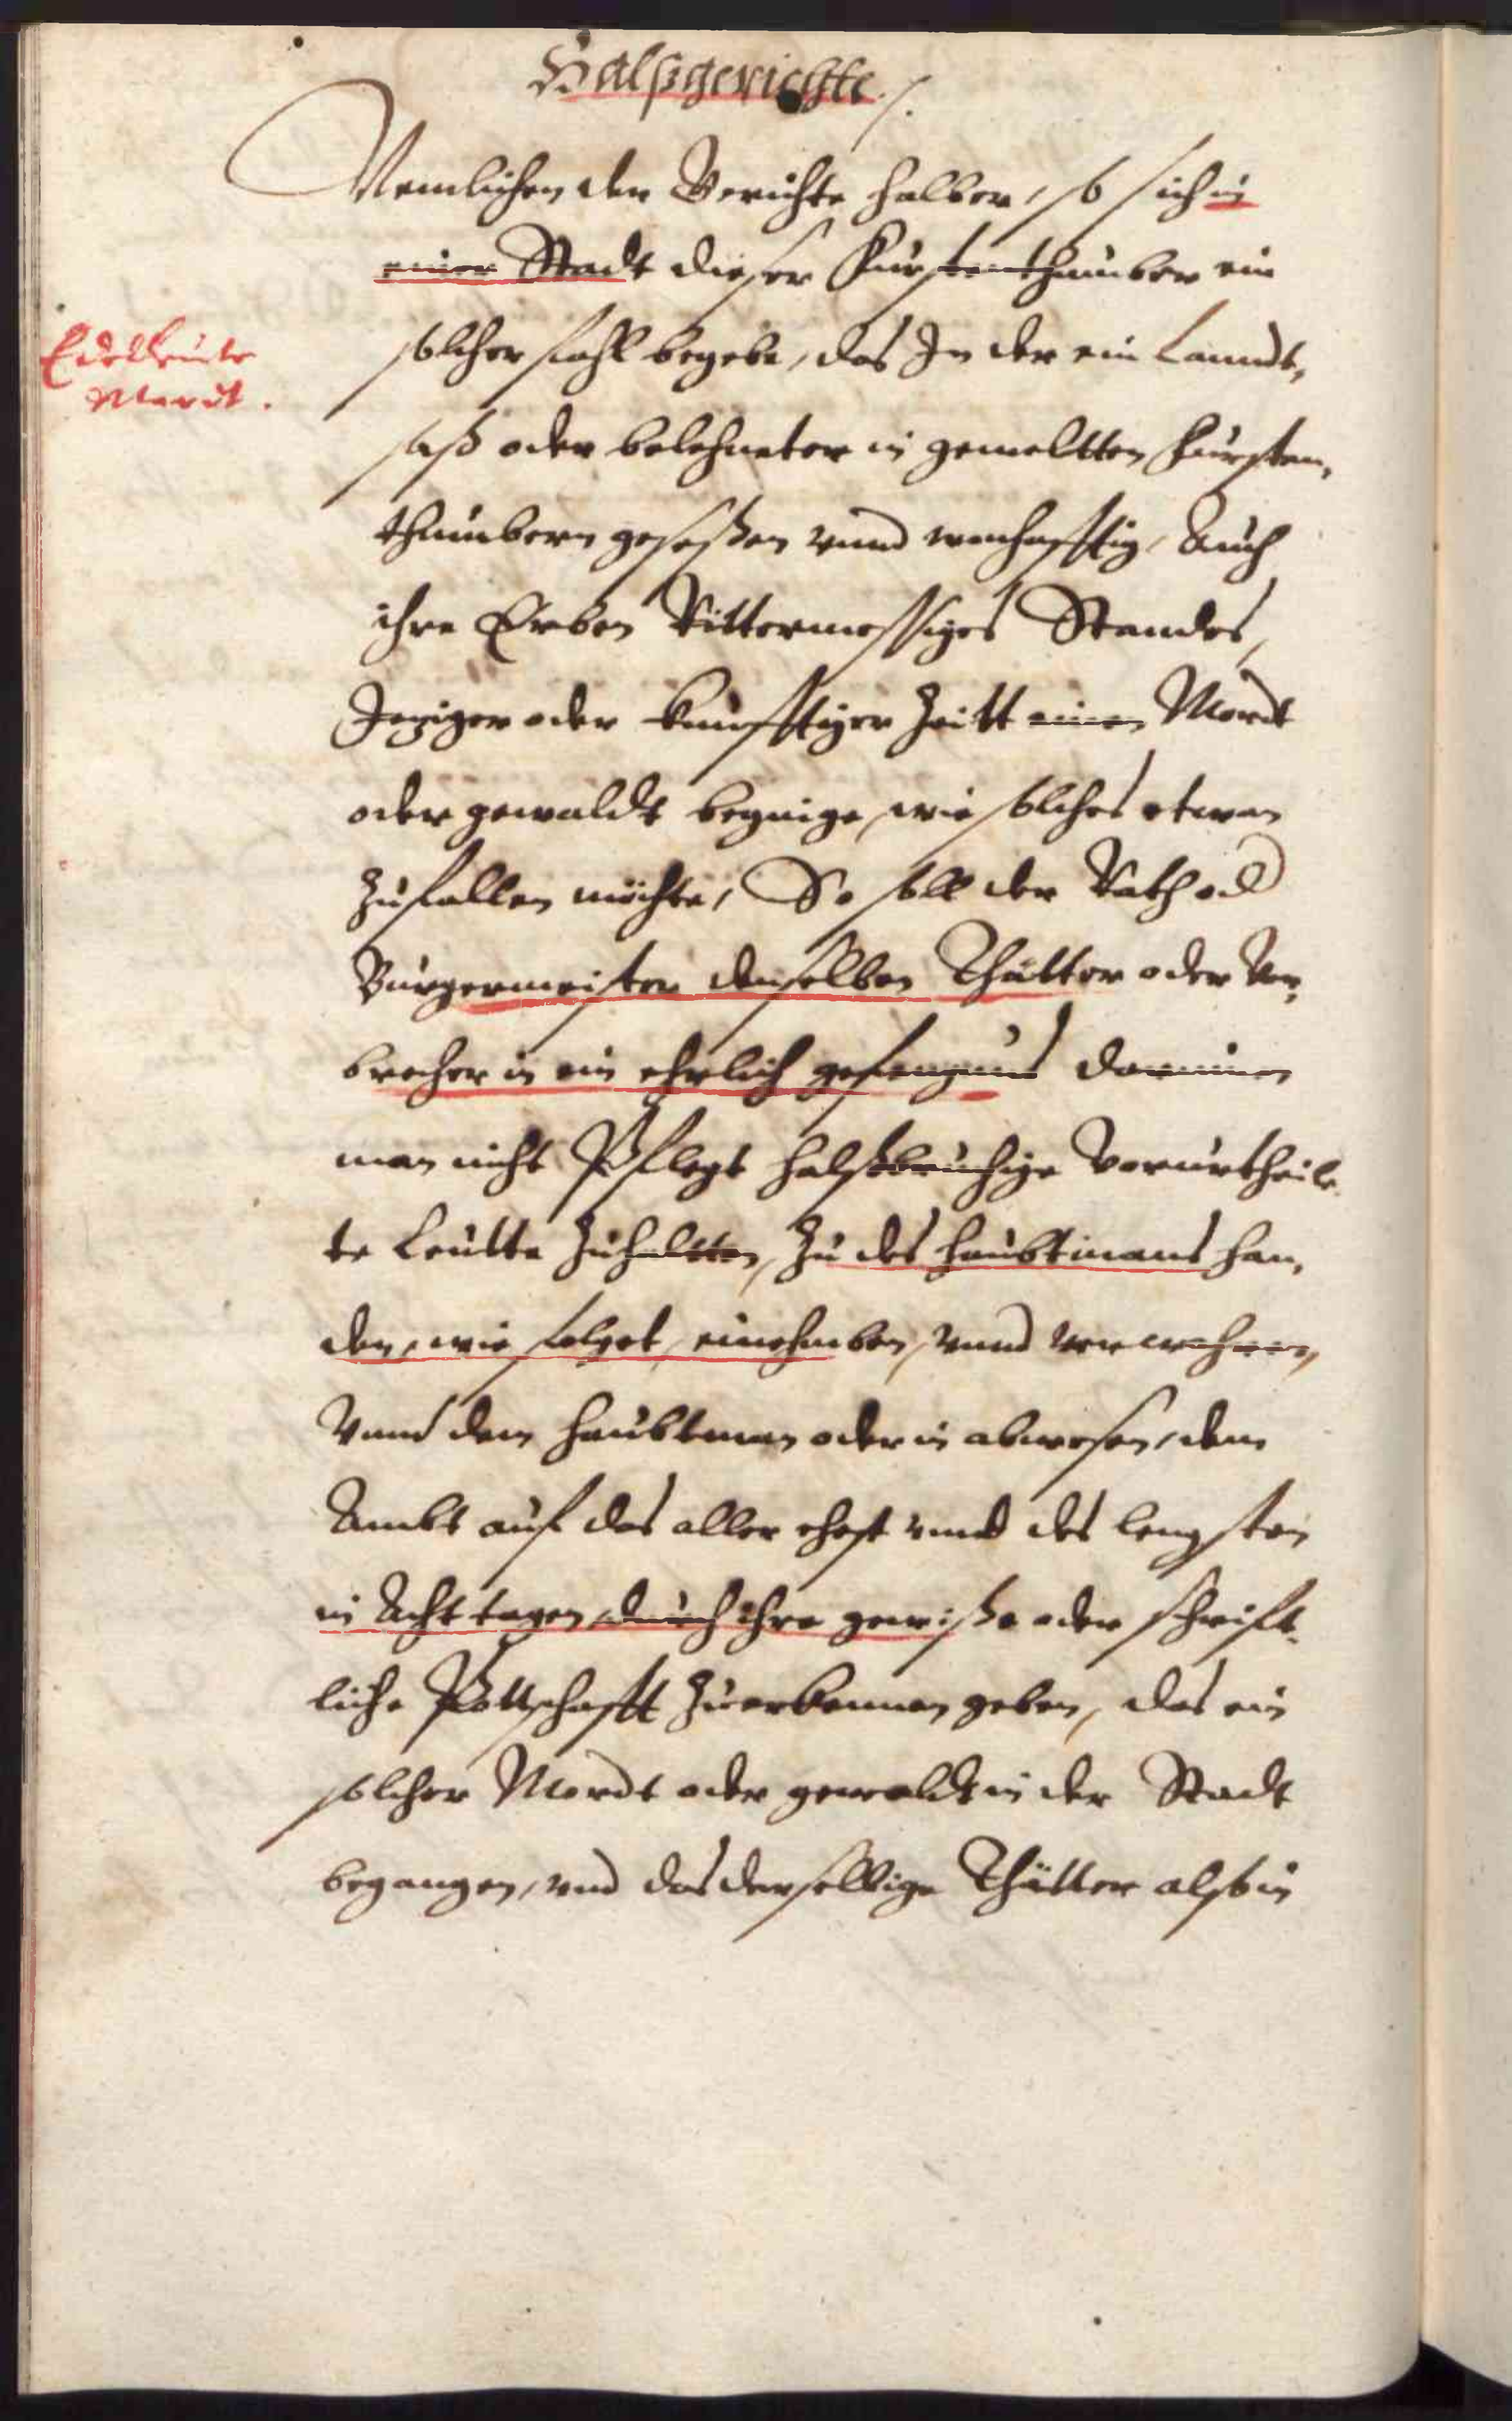 Halßgerichte./.
Nemlichen der Gerichte halber, so sich in
einer Stadt dieser Fürstenthumber ein
solcher fahl begebe, das In der ein Landt,
Edelleute
Mordt.
saß oder belehneter in gemeltten Fürsten,
thumbern geseßen vnnd wonhafftig, Auch
ihre Erben Rittermessiges Standes,
Jeziger oder kunfftiger Zeitt einen Mordt
oder gewaldt beginge, wie solches etwan
Zufallen möchte, So soll der Rath od
Burgermeister denselben Thätter oder Ver,
brecher in ein ehrlich gefengnus darinnen
man nicht Pflegt halßbruchige Verurtheile
te Leutte Zuhaltten, Zu des haubtmans han,
den, wie folget, einehmben, vnnd verwahren,
Vnnd dem haubtman oder in abwesen, dem
Ambt auf das aller ehest vnnd des lengsten
in Acht tagen, durch ihre gewiße oder schrifft,
liche Pottschafft Zuerkennen geben, das ein
solcher Mordt oder gewaldt in der Stadt
begangen, vnd das derselbige Thätter alß in